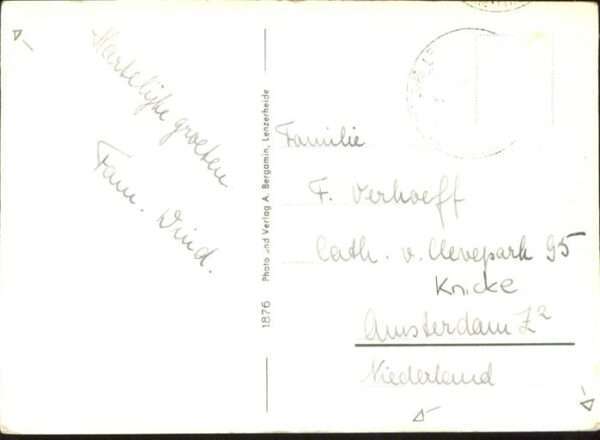 Hartelijke groeten
Fam. Wind.
1876 Photo und Verlag A. Bergamin, Lenzerheide
Familie
F. Verhoeff
Cath. v. Clevepark 95
Knicke
Amsterdam Z²
Niederland